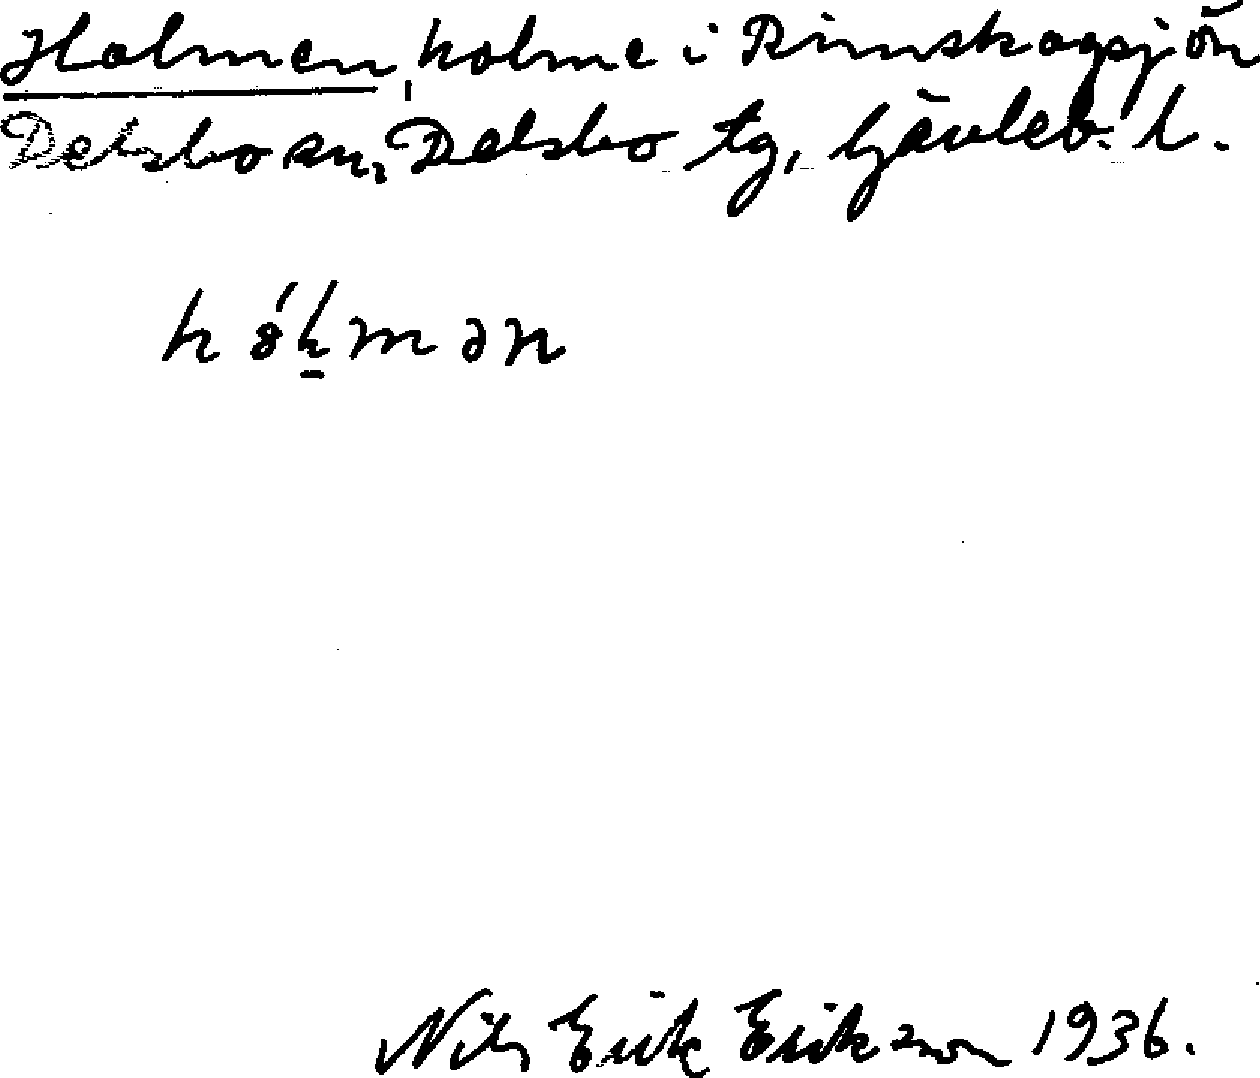 Holmen, holme i Rimskogsjön
Delsbo sn, Delsbo tg, Gävleb. l.
Nils Erik Erikson 1936.